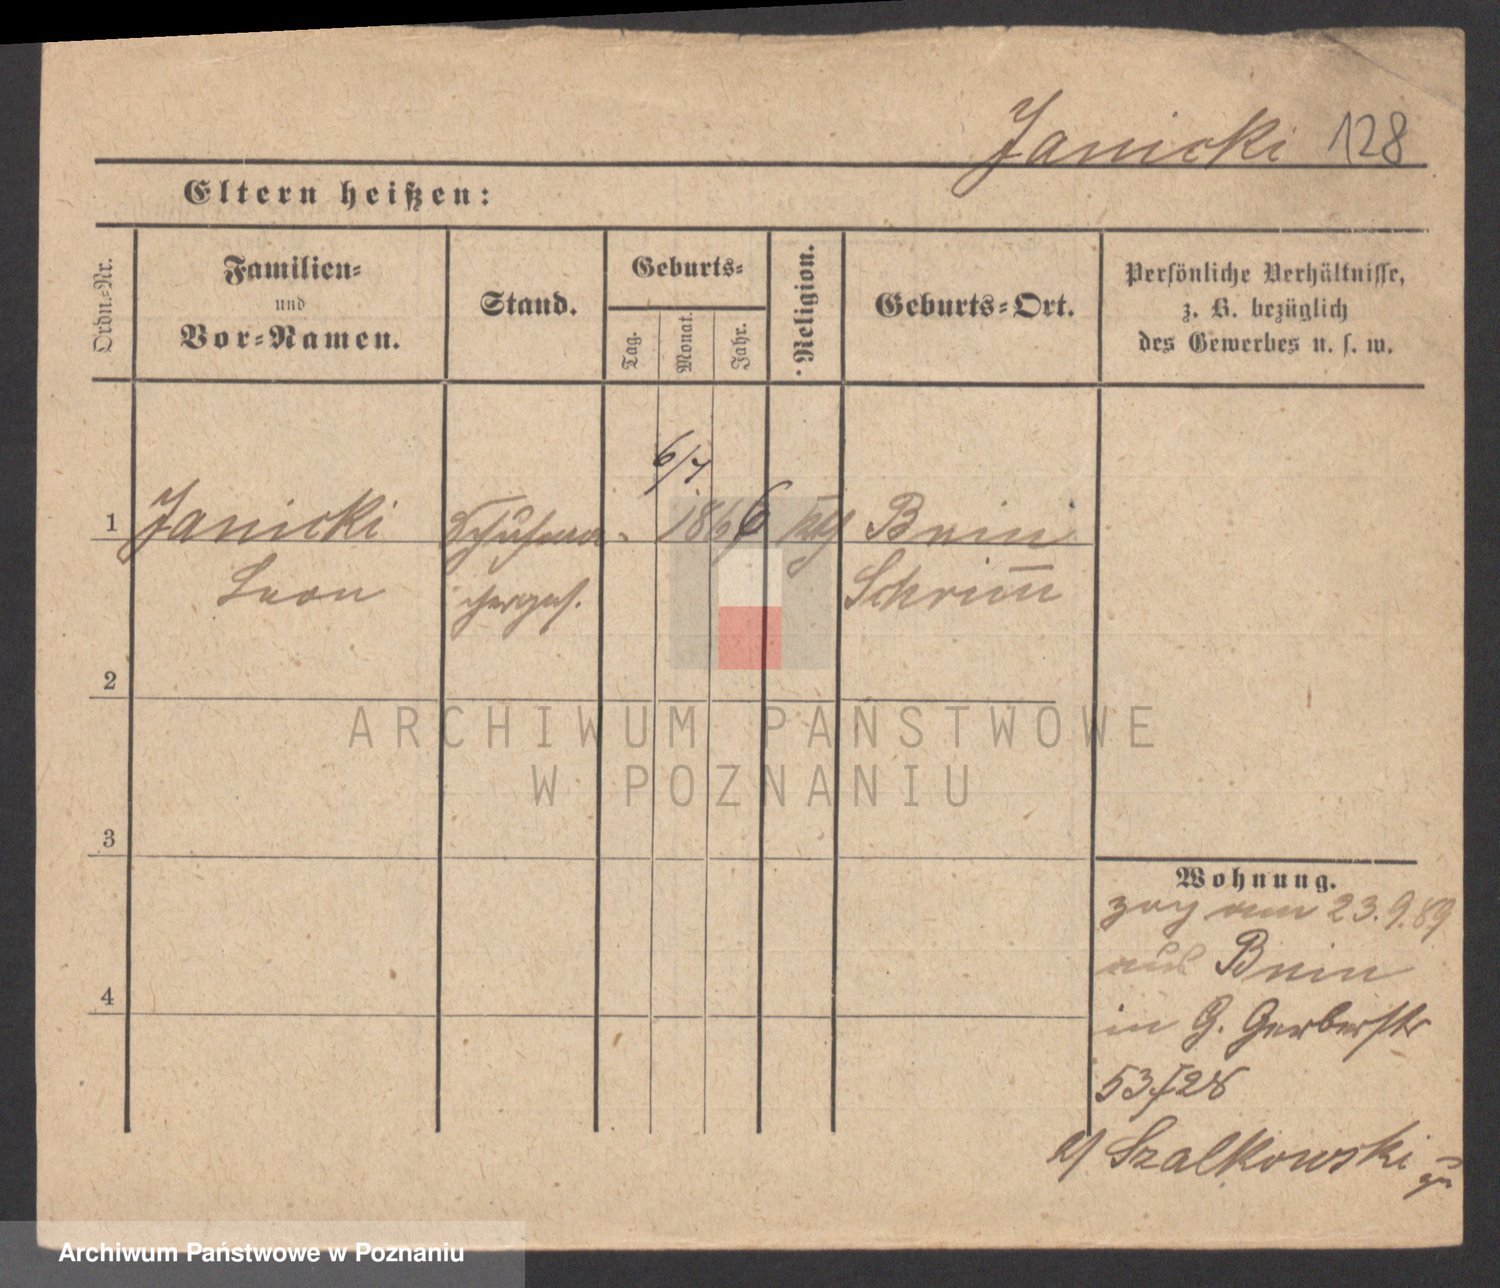 Janicki 128
Eltern heißen:
Ordn.-Nr.
Familien-
und
Vor-Namen.
Stand.
Geburts-
Tag.
Monat.
Jahr.
Religion.
Geburts-Ort.
Persönliche Verhältnisse,
z. B. bezüglich
des Gewerbes u. s. w.
6/7
1 Janicki Schuhma- 1866 kth Bnin
Leon cherges. Schrim̅
2
3
4
Wohnung.
zog am 23.9.89
aus Bnin
in G. Gerberstr
53 I 28
b/ Szalkowski
ARCHIWUM PAŃSTWOWE
W POZNANIU
Archiwum Państwowe w Poznaniu